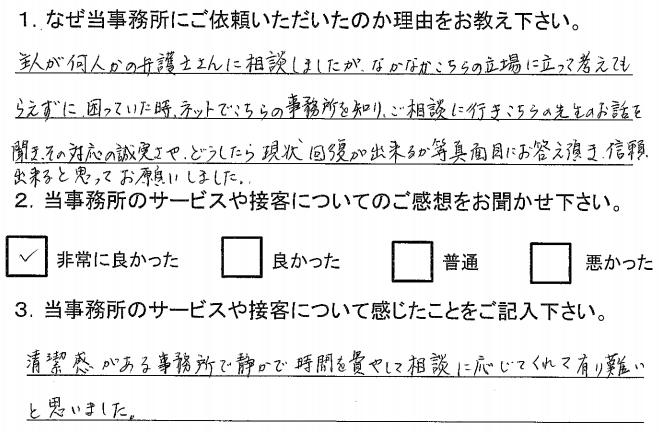 1. なぜ当事務所にご依頼いただいたのか理由をお教え下さい。
主人が何人かの弁護士さんに相談しましたが、なかなかこちらの立場に立って考えても
らえずに、困っていた時、ネットでこちらの事務所を知り、ご相談に行きこちらの先生のお話を
聞き、その対応の誠実さや、どうしたら現状回復が出来るか等真面目にお答え頂き、信頼
出来ると思ってお願いしました。
2. 当事務所のサービスや接客についてのご感想をお聞かせ下さい。
✓ 非常に良かった 良かった 普通 悪かった
3. 当事務所のサービスや接客について感じたことをご記入下さい。
清潔感がある事務所で静かで時間を費やして相談に応じてくれて有り難い
と思いました。